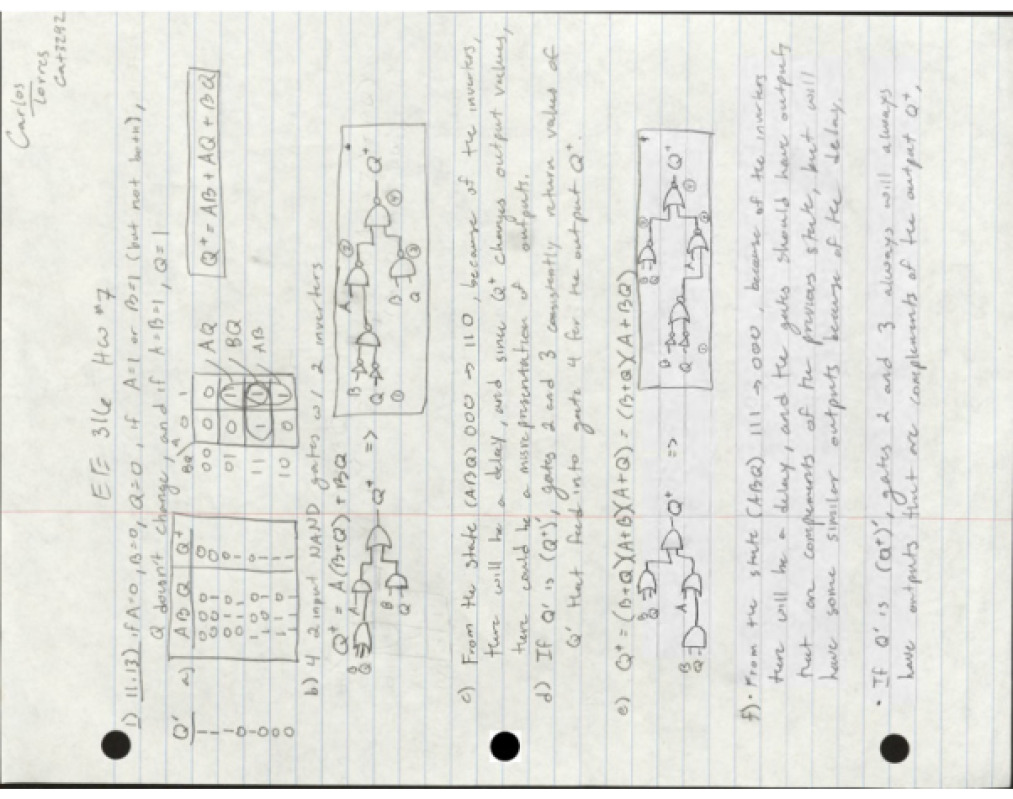 Carlos
Torres
Cat3292
EE 316 HW #7
1) 11.13) if A=0, B=0, Q=0, if A=1 or B=1 (but not both),
Q doesn't change, and if A=B=1, Q=1
a)
Q' A B Q Q+
1 0 0 0 0
1 0 0 1 0
1 0 1 0 0
0 0 1 1 1
1 1 0 0 0
0 1 0 1 1
0 1 1 0 1
0 1 1 1 1
BQ\A 0 1
00 0 0 AQ
01 0 1 BQ
11 1 1 AB
10 0 1
Q+ = AB + AQ + BQ
b) 4 2 input NAND gates w/ 2 inverters
Q+ = A(B+Q) + BQ
B Q A B Q Q+ => B Q ① A ② B Q ③ ④ Q+
c) From the state (ABQ) 000 → 110, because of the inverters,
there will be a delay, and since Q+ changes output values,
there could be a misrepresentation of outputs.
d) If Q' is (Q+)', gates 2 and 3 consistently return values of
Q' that feed into gate 4 for the output Q+.
e) Q+ = (B+Q)(A+B)(A+Q) = (B+Q)(A+BQ)
B Q A B Q Q+ => B Q ① A B Q Q+
f) • From the state (ABQ) 111 → 000, because of the inverters
there will be a delay, and the gates should have outputs
that are compements of the previous state, but will
have some similar outputs because of the delay.
• If Q' is (Q+)', gates 2 and 3 always will always
have outputs that are complements of the output Q+.